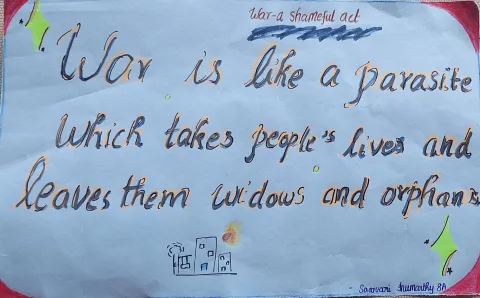 War-a shameful act
War is like a parasite
which takes people's lives and
leaves them widows and orphans
8A